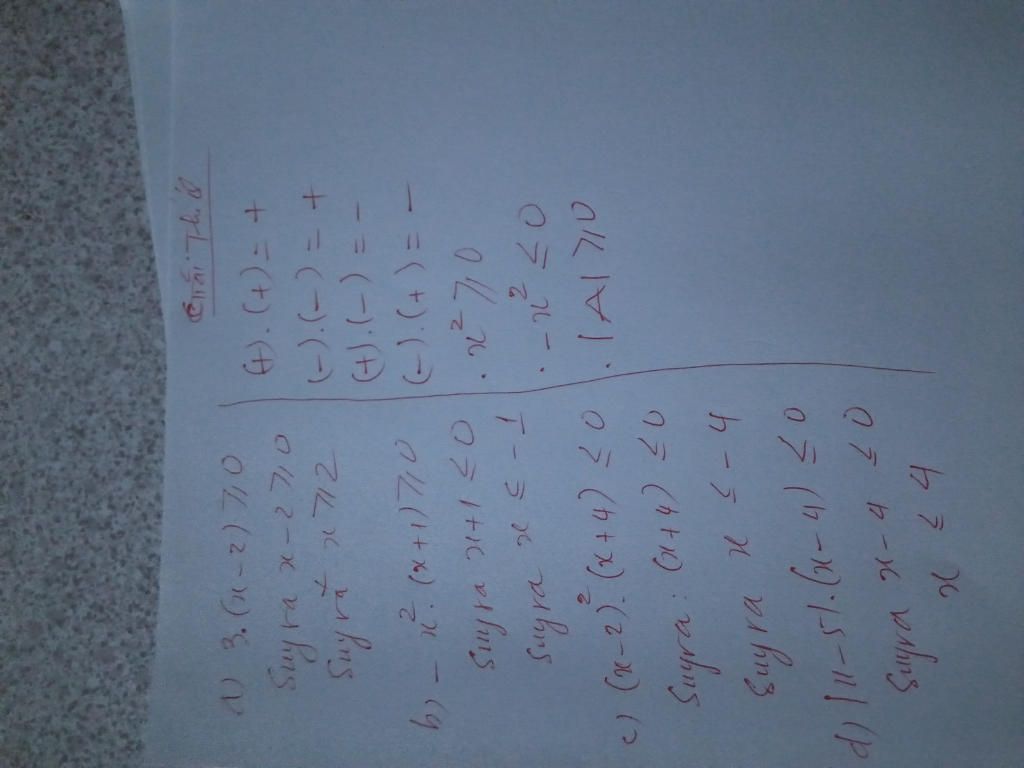 a) 3.(x-2) ≥ 0
Suy ra x-2 ≥ 0
Suy ra x ≥ 2
b) - x². (x+1) ≥ 0
Suy ra x+1 ≤ 0
Suy ra x ≤ -1
c) (x-2)². (x+4) ≤ 0
Suy ra: (x+4) ≤ 0
Suy ra x ≤ -4
d) |x-5|. (x-4) ≤ 0
Suy ra x-4 ≤ 0
x ≤ 4
(+).(+) = +
(-).(-) = +
(+).(-) = -
(-).(+) = -
. x² ≥ 0
. -x² ≤ 0
. |A| ≥ 0